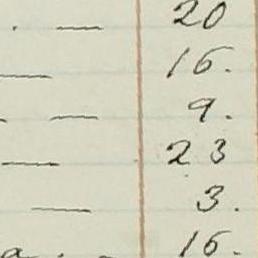 . — 20
— 16.
— 9.
— 23
— 3.
a. - 16.